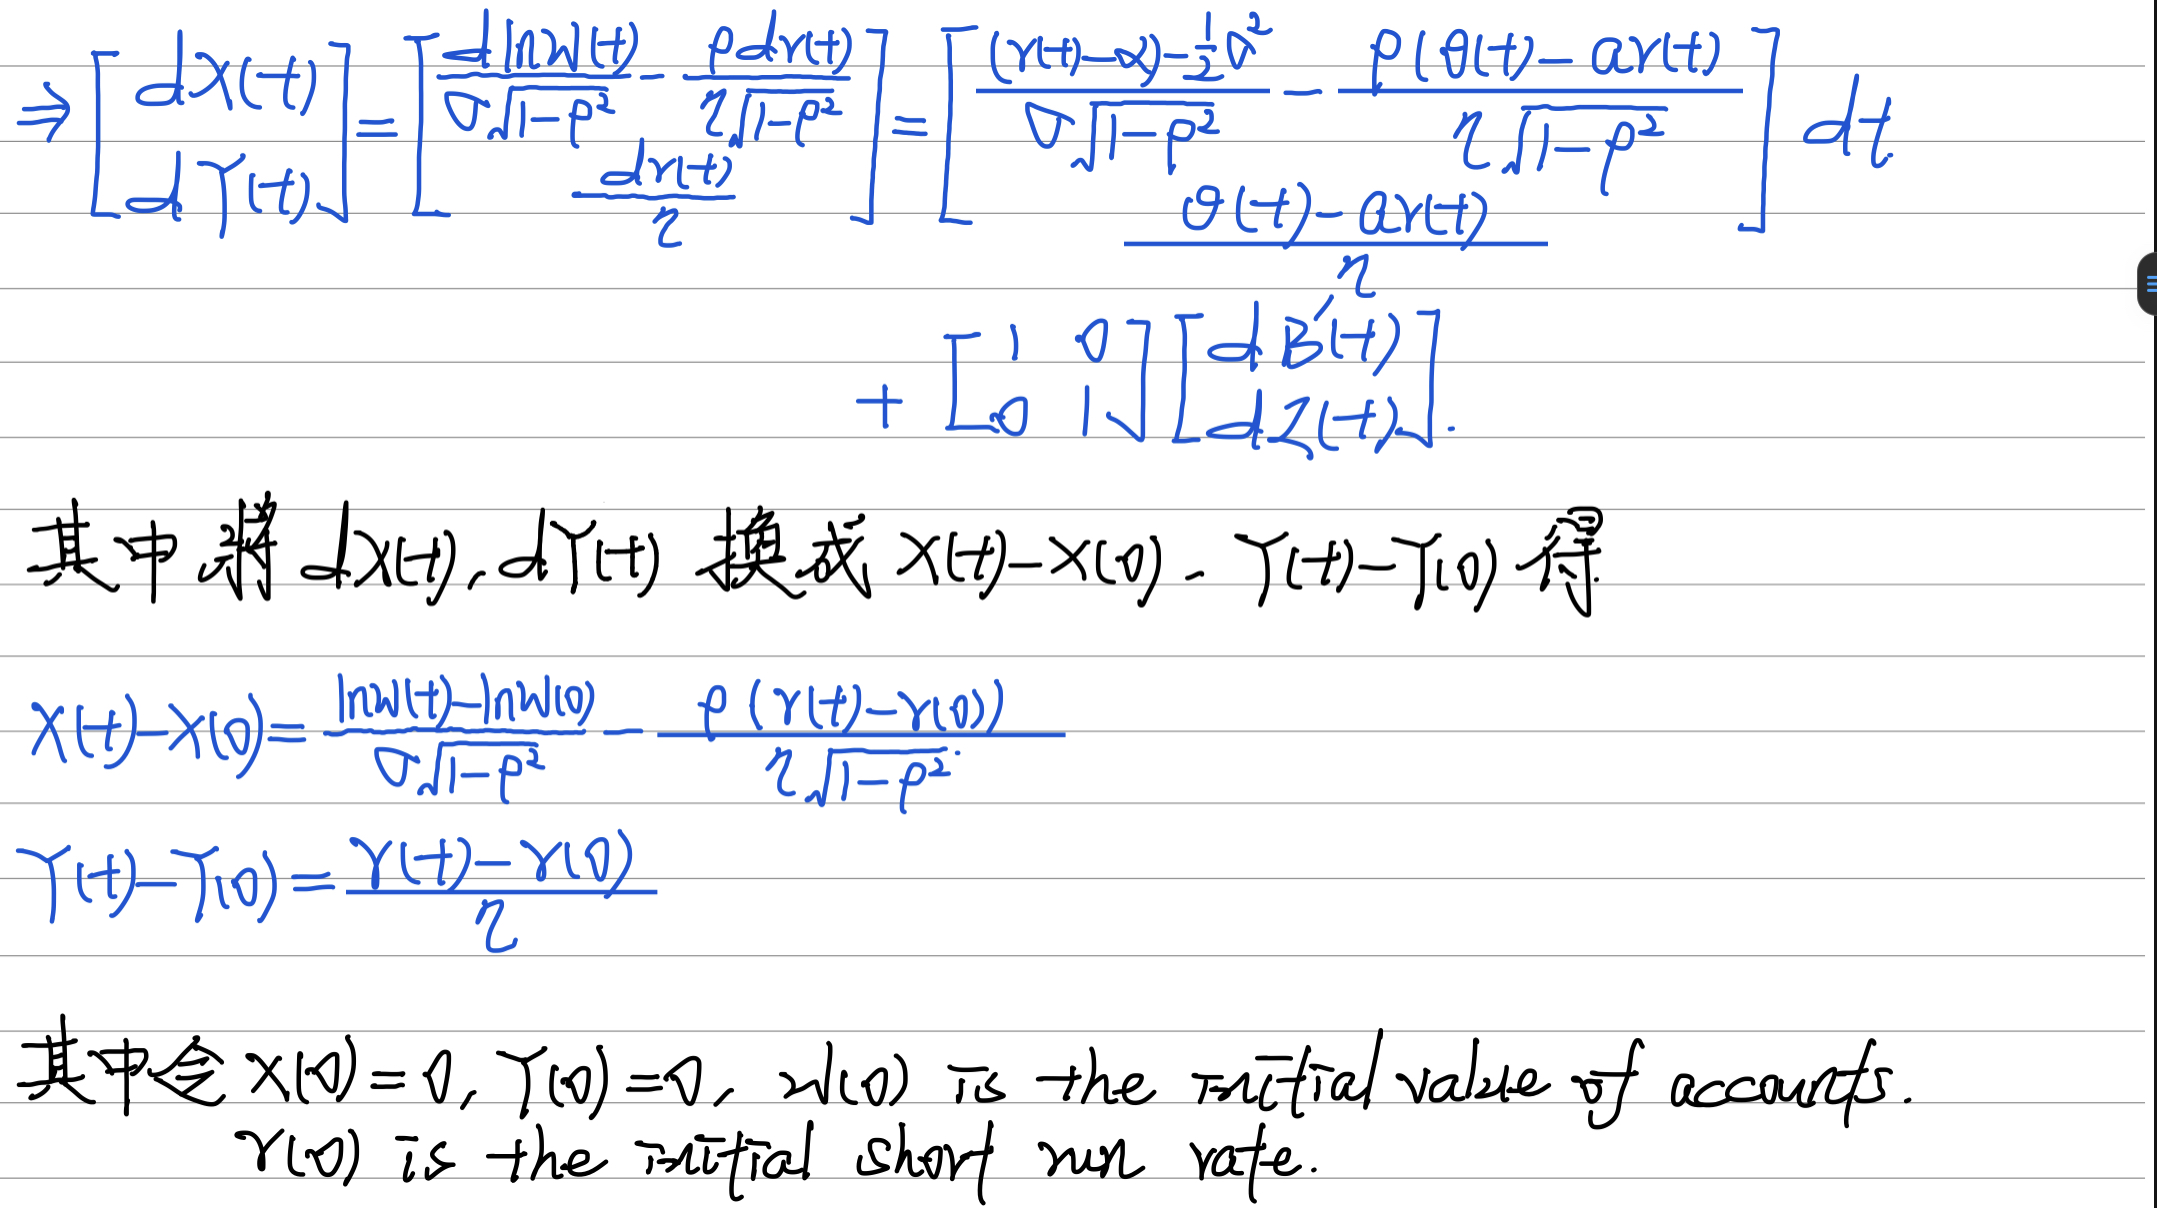 ⇒ [dX(t); dY(t)] = [dlnW(t)/(σ√(1-ρ²)) - ρdr(t)/(η√(1-ρ²)); dr(t)/η] = [((r(t)-α)-½σ²)/(σ√(1-ρ²)) - ρ(θ(t)-ar(t))/(η√(1-ρ²)); (θ(t)-ar(t))/η] dt.
+ [1 0; 0 1][dB'(t); dZ(t)].
其中将 dX(t), dY(t) 换成 X(t)-X(0). Y(t)-Y(0) 得.
X(t)-X(0) = (lnW(t)-lnW(0))/(σ√(1-ρ²)) - ρ(r(t)-r(0))/(η√(1-ρ²))
Y(t)-Y(0) = (r(t)-r(0))/η
其中令 X(0)=0, Y(0)=0, W(0) is the initial value of accounts.
r(0) is the initial short run rate.